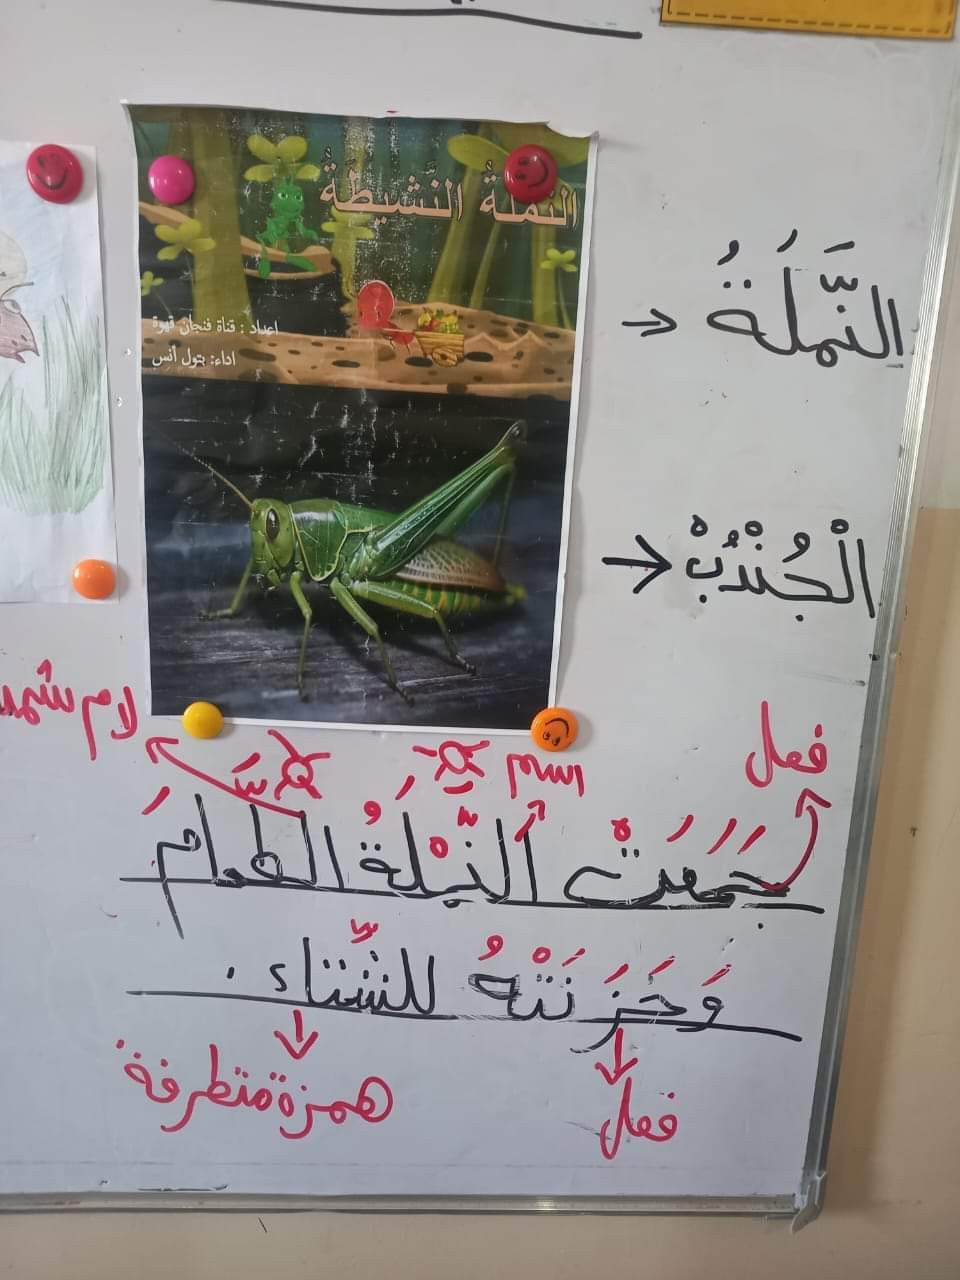 النَّملَةُ النَّشيطَةُ
اعداد : قناة فنجان قهوة
اداء: بتول أنس
النَّملَةُ
الْجُنْدُبْ
فعل
اسم
لام شمس
جَمَعَتْ اَلنَّملَةُ الطعامَ
وَخَزَنَتْهُ للشّتاء .
فعل
همزة متطرفة